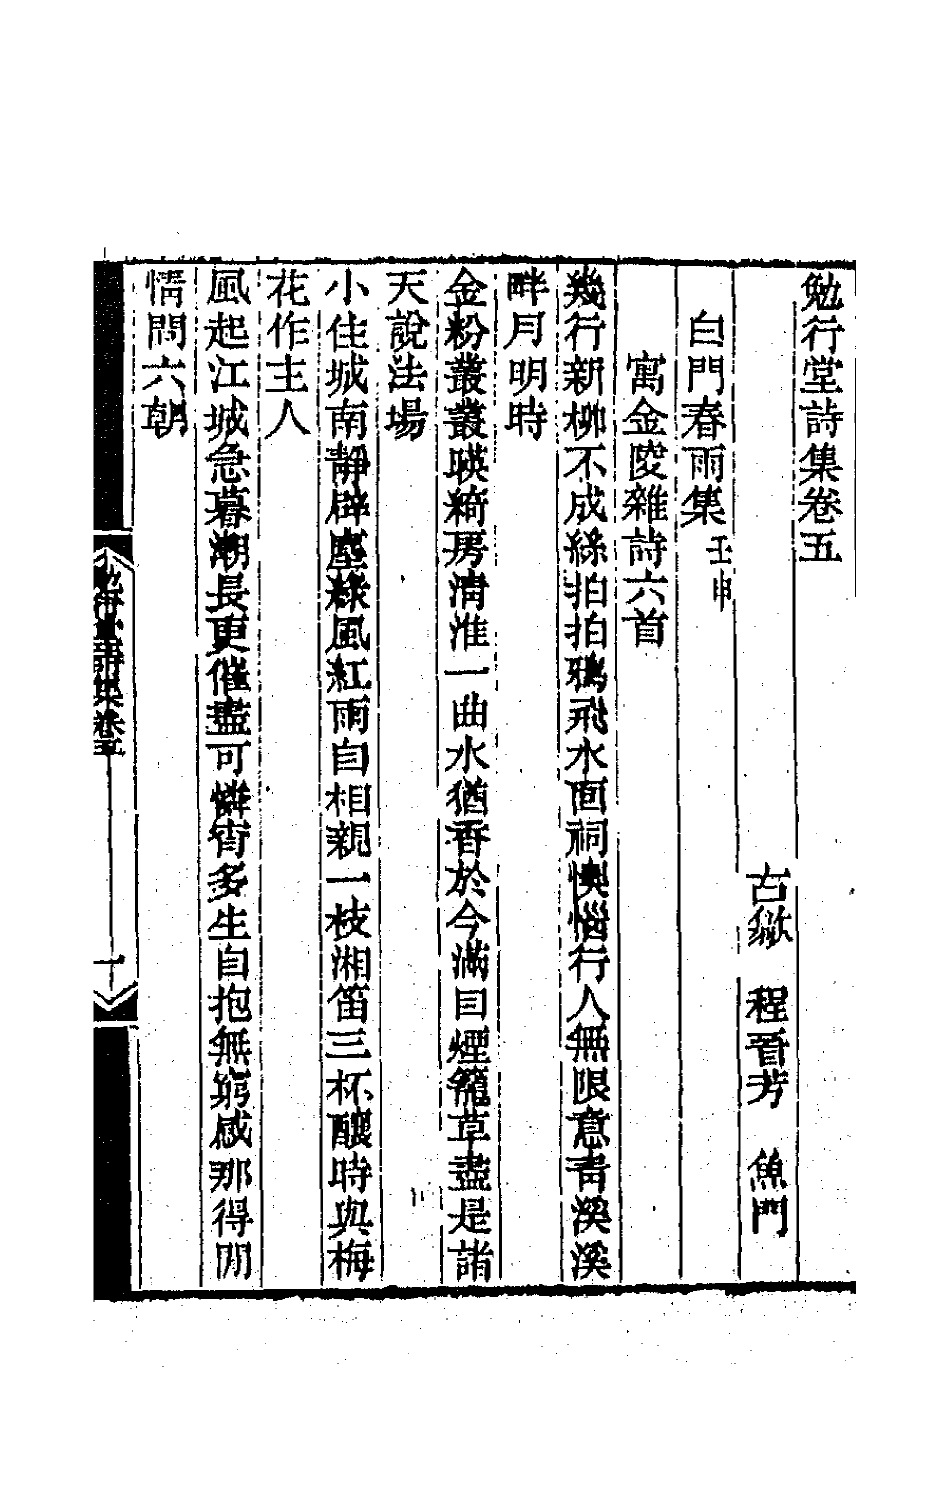 勉行堂詩集卷五
古歙　程晉芳　魚門
白門春雨集 壬申
寓金陵雜詩六首
幾行新柳不成絲拍拍鴉飛水面祠懊惱行人無限意靑溪溪
畔月明時
金粉叢叢映綺房淸淮一曲水猶香於今滿目煙籠草盡是諸
天說法場
小住城南靜辟塵綠風紅雨自相親一枝湘笛三杯釀時與梅
花作主人
風起江城急暮潮長更催盡可憐宵多生自抱無窮感那得閒
情問六朝
勉行堂詩集卷五
一